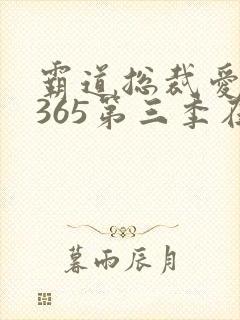 霸道总裁爱
365第三季在
暮雨辰月